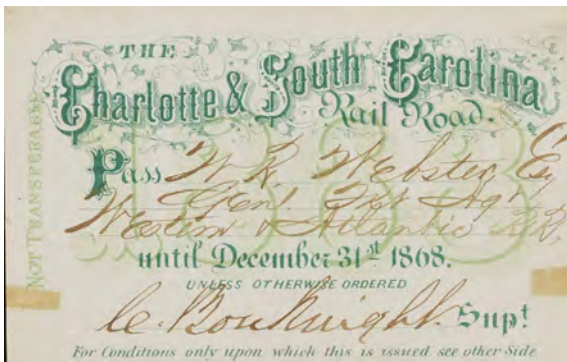 THE
Charlotte & South Carolina
Rail Road.
Pass W. R. Webster Esq
Genl Tkt Agt
Western & Atlantic R.R.
until December 31st 1868.
UNLESS OTHERWISE ORDERED
C. Bouknight. Supt
For Conditions only upon which this is issued see other Side
NOT TRANSFERABLE